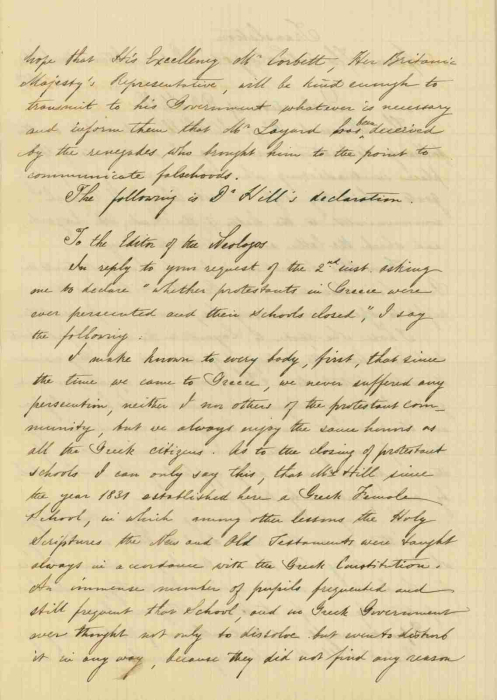 hope that His Excellency Mr Corbett, Her Britanic
Majesty's Representative, will be kind enough to
transmit to his Government whatever is necessary
and inform them that Mr Layard has been deceived
by the renegades who brought him to the point to
communicate falsehoods.
The following is Dr Hill's declaration.
To the Editor of the Neologos
In reply to your request of the 2nd inst. asking
me to declare "whether protestants in Greece were
ever persecuted and their schools closed", I say
the following:
I make known to every body, first, that since
the time we came to Greece, we never suffered any
persecution, neither I nor others of the protestant com-
munity, but we always enjoy the same honors as
all the Greek citizens. As to the closing of protestant
schools I can only say this, that Mrs Hill since
the year 1831 established here a Greek Female
School, in which among other lessons the Holy
Scriptures the New and Old Testaments were taught
always in accordance with the Greek Constitution.
An immense number of pupils frequented and
still frequent that School, and no Greek Government
ever thought not only to dissolve but even to disturb
it in any way, because they did not find any reason